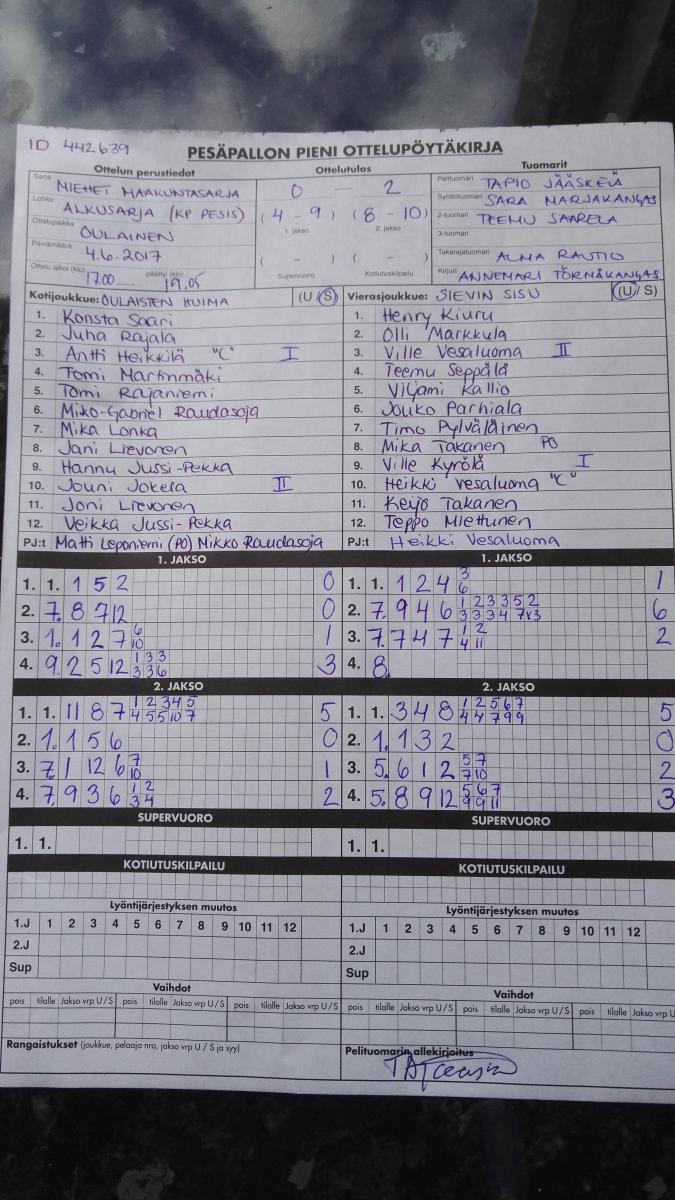 ID 442639
PESÄPALLON PIENI OTTELUPÖYTÄKIRJA
Ottelun perustiedot Ottelutulos Tuomarit
Sarja MIEHET MAAKUNTASARJA 0 — 2 Pelituomari TAPIO JÄÄSKELÄ
Lohko ALKUSARJA (KP PESIS) (4 - 9) (8 - 10) Syöttötuomari SARA MARJAKANGAS
Ottelupaikka OULAINEN 1. jakso 2. jakso 2-tuomari TEEMU SAARELA
Päivämäärä 4.6.2017 ( - ) ( - ) 3-tuomari
Takarajatuomari ALMA RAUTIO
Ottelu alkoi (klo) 17.00 päättyi (klo) 19.05 Supervuoro Kotiutuskilpailu Kirjuri ANNEMARI TÖRMÄKANGAS
Kotijoukkue: OULAISTEN HUIMA (U/S) Vierasjoukkue: SIEVIN SISU (U/S)
1. Konsta Saari 1. Henry Kiuru
2. Juha Rajala 2. Olli Markkula
3. Antti Heikkilä "C" I 3. Ville Vesaluoma II
4. Tomi Martinmäki 4. Teemu Seppälä
5. Tomi Rajaniemi 5. Viljami Kallio
6. Miko-Gabriel Raudasoja 6. Jouko Parhiala
7. Mika Lonka 7. Timo Pylväläinen
8. Jani Lievonen 8. Mika Takanen PO
9. Hannu Jussi-Pekka 9. Ville Kyrölä I
10. Jouni Jokela II 10. Heikki Vesaluoma "C"
11. Joni Lievonen 11. Keijo Takanen
12. Veikka Jussi-Pekka 12. Teppo Miettunen
PJ:t Matti Leponiemi (PO) Mikko Raudasoja PJ:t Heikki Vesaluoma
1. JAKSO 1. JAKSO
1. 1. 1 5 2 0 1. 1. 1 2 4 3/6 1
2. 7. 8 7 12 0 2. 7. 9 4 6 6
3. 1. 1 2 7 6/10 1 3. 7. 7 4 7 1/4 2/11 2
4. 9. 2 5 12 1/3 3/3 3/6 3 4. 8.
2. JAKSO 2. JAKSO
1. 1. 11 8 7 1/4 2/5 3/5 4/10 5/7 5 1. 1. 3 4 8 1/4 2/4 5/7 6/9 7/9 5
2. 1. 1 5 6 0 2. 1. 1 3 2 0
3. 7. 1 12 6 7/10 1 3. 5. 6 1 2 5/7 7/10 2
4. 7. 9 3 6 1/3 2/4 2 4. 5. 8 9 12 3
SUPERVUORO SUPERVUORO
1. 1. 1. 1.
KOTIUTUSKILPAILU KOTIUTUSKILPAILU
Lyöntijärjestyksen muutos Lyöntijärjestyksen muutos
1.J 1 2 3 4 5 6 7 8 9 10 11 12 1.J 1 2 3 4 5 6 7 8 9 10 11 12
2.J 2.J
Sup Sup
Vaihdot Vaihdot
pois tilalle Jakso vrp U/S pois tilalle Jakso vrp U/S pois tilalle Jakso vrp U/S pois tilalle Jakso vrp U/S pois tilalle Jakso vrp U/S pois tilalle Jakso vrp U
Rangaistukset (joukkue, pelaaja nro, jakso vrp U / S ja syy) Pelituomarin allekirjoitus